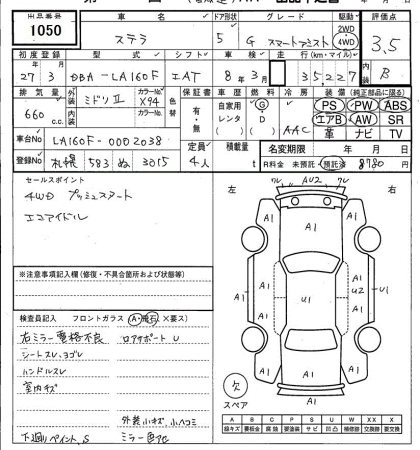 出品番号 車名 ドア形状 グレード 駆動 評価点
1050 ステラ 5 G スマートアシスト 2WD 4WD 3.5
初度登録 型式 シフト 車検 走行(km・マイル) 内装
27年3月 DBA-LA160F IAT 8年3月 35227 B
排気量 外装 カラーNo. 色替 保証書 車歴 燃料 冷房 装備(純正部品に限る)
660c.c. ミドリⅡ X94 有・無 自家用 レンタ G D AAC PS PW ABS
内装 カラーNo. エアB AW SR
革 ナビ TV
車台No LA160F-0002038 定員 積載量 名変期限 年 月 日
登録No 札幌 583 ぬ 3015 4人 t R料金 未預託・預託済 8780
セールスポイント
4WD プッシュスタート
エコアイドル
左 右
ワレ AU2 ワレ
A1 A1
A1 A1
A1 A1 U1 U2 U1
A1 A1
A1
スペア 欠
※注意事項記入欄(修復・不具合箇所および状態等)
検査員記入 フロントガラス(A・飛石 X(要ス)
右ミラー電格不良 ロアサポート U
シートスレ、ヨゴレ
ハンドルスレ
室内キズ
外装 小キズ 小ヘコミ
下廻りペイント、S ミラー色アセ
A B C P S U W X XX X
線キズ 要板金 腐 要塗装 サビ 凹凸 補修跡 交換跡 要交換